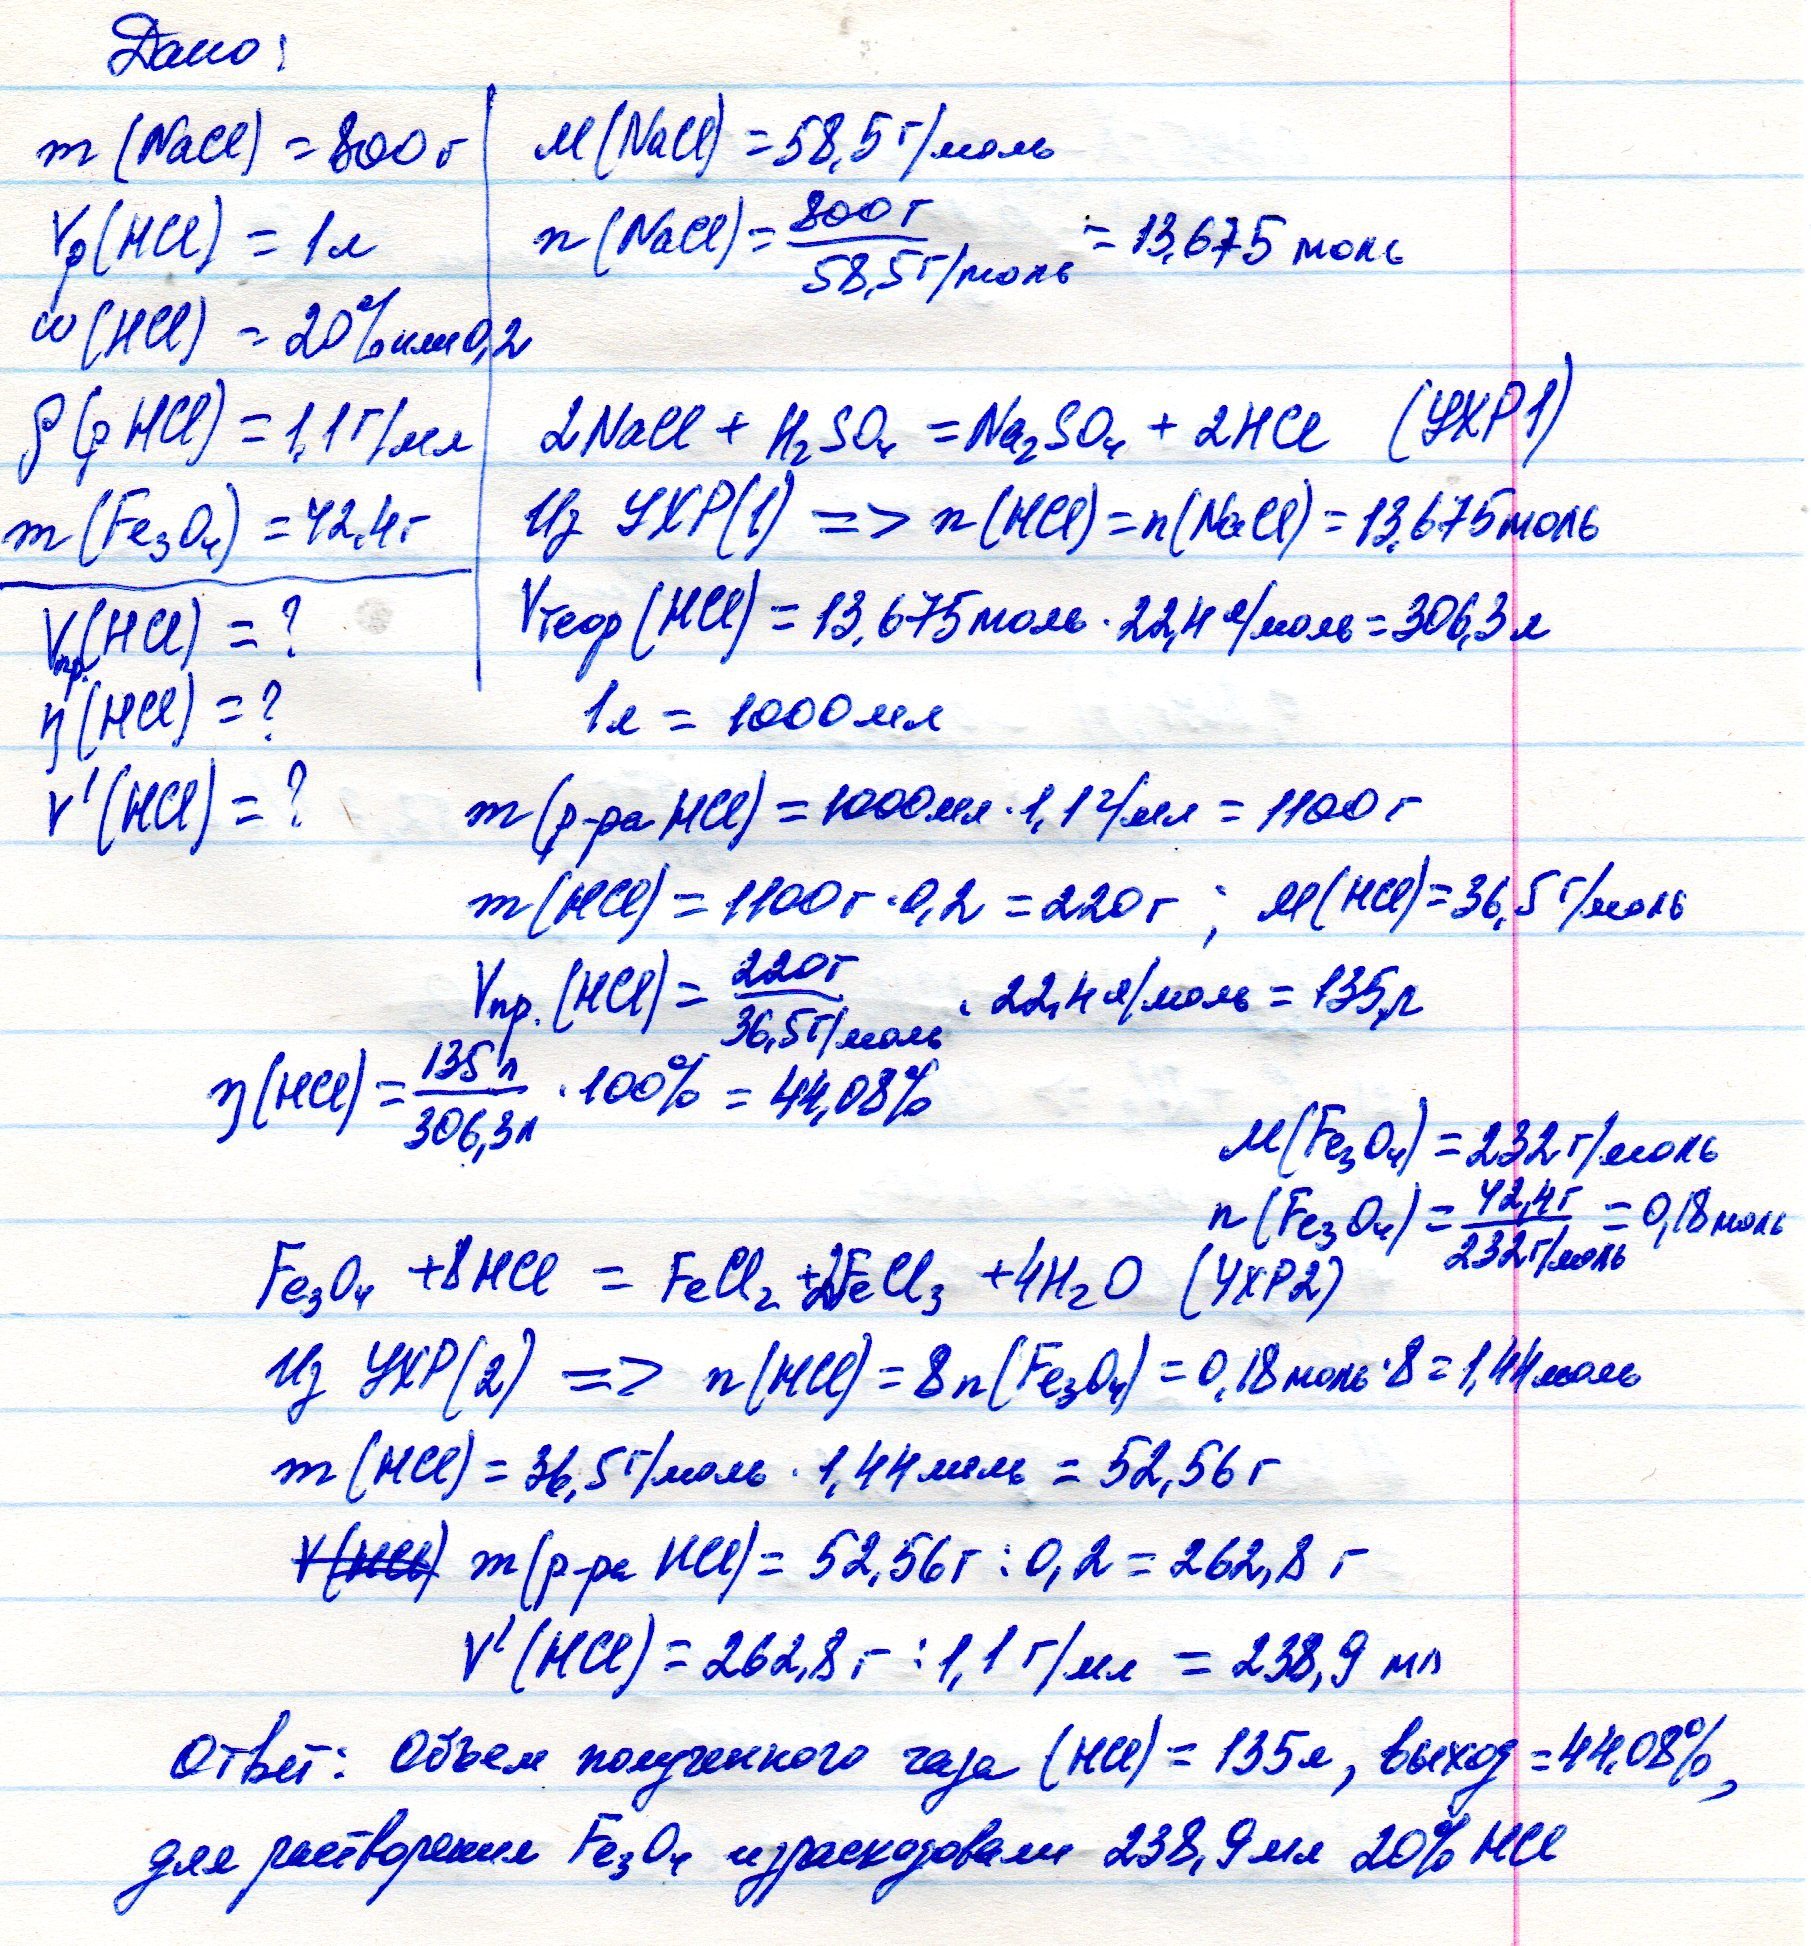 Дано:
m(NaCl) = 800г
Vр(HCl) = 1л
ω(HCl) = 20% или 0,2
ρ(р HCl) = 1,1г/мл
m(Fe₃O₄) = 42,4г
Vпр.(HCl) = ?
η(HCl) = ?
V'(HCl) = ?
M(NaCl) = 58,5г/моль
n(NaCl) = 800г / 58,5г/моль = 13,675 моль
2NaCl + H₂SO₄ = Na₂SO₄ + 2HCl (УХР1)
Из УХР(1) => n(HCl) = n(NaCl) = 13,675 моль
Vтеор(HCl) = 13,675 моль · 22,4 л/моль = 306,3л
1л = 1000мл
m(р-ра HCl) = 1000мл · 1,1г/мл = 1100г
m(HCl) = 1100г · 0,2 = 220г ; M(HCl) = 36,5г/моль
Vпр.(HCl) = 220г / 36,5г/моль · 22,4л/моль = 135л
η(HCl) = 135л / 306,3л · 100% = 44,08%
M(Fe₃O₄) = 232г/моль
n(Fe₃O₄) = 42,4г / 232г/моль = 0,18моль
Fe₃O₄ + 8HCl = FeCl₂ + 2FeCl₃ + 4H₂O (УХР2)
Из УХР(2) => n(HCl) = 8n(Fe₃O₄) = 0,18моль · 8 = 1,44моль
m(HCl) = 36,5г/моль · 1,44моль = 52,56г
V(HCl) m(р-ра HCl) = 52,56г : 0,2 = 262,8 г
V'(HCl) = 262,8г : 1,1г/мл = 238,9 мл
Ответ: Объем полученного газа (HCl) = 135л, выход = 44,08%,
для растворения Fe₃O₄ израсходовали 238,9мл 20% HCl